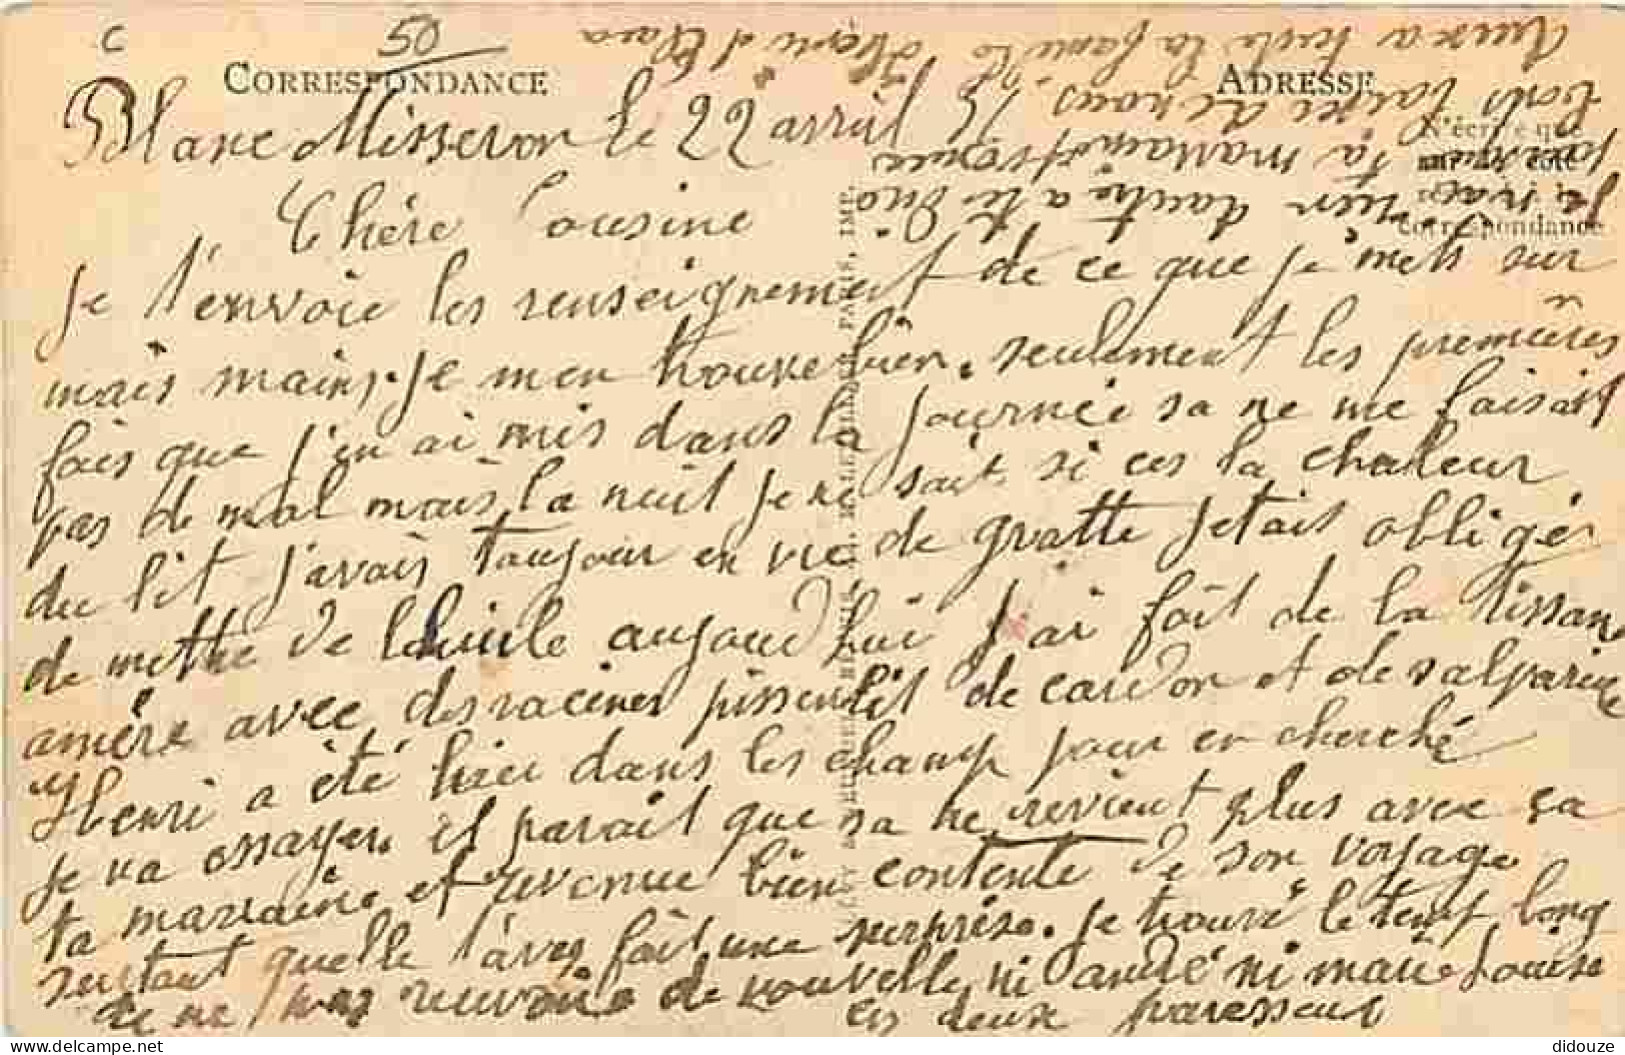 c 50
CORRESPONDANCE
ADRESSE
N'écrire que
sur ce côté
correspondance
Blanc Misseron le 22 avril
Chère Cousine
Je t'envoie les renseignement de ce que je mets sur
mais mains. Je men trouve bien. seulement les premières
fois que j'en ai mis dans la journée sa ne me faisait
pas de mal mais la nuit je ne sait si ces la chaleur
du lit j'avais toujour en vie de gratte jetais obligér
de mettre de lhuile aujourd'hui j'ai fait de la tissane
amère avec des racines pissenlit de cardon et de salparine
Henri a été hier dans les champ pour en cherché
je va essayer. il parait que sa ne revient plus avec ça
ta marraine et revenue bien contente de son voyage
surtant quelle t'aves fait une surprise. je trouve le temp long
de ne pas recevoir de nouvelle, ni andré ni marie Louise
ces deux paresseux
Je nai rien dautre a te dire
ta marraine
tous baiser de nous
Ainsi a toute la famille Henri d Clara
didouze